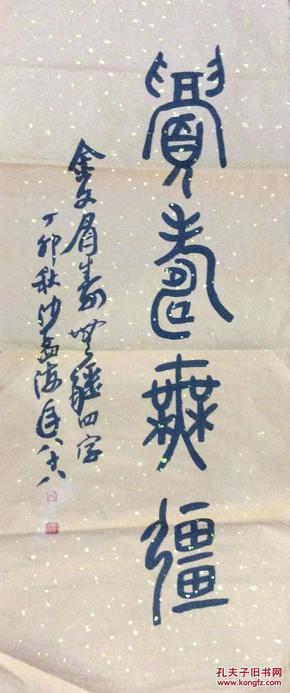 眉寿無疆
金文眉寿無疆四字
丁卯秋沙孟海年八十八
孔夫子旧书网